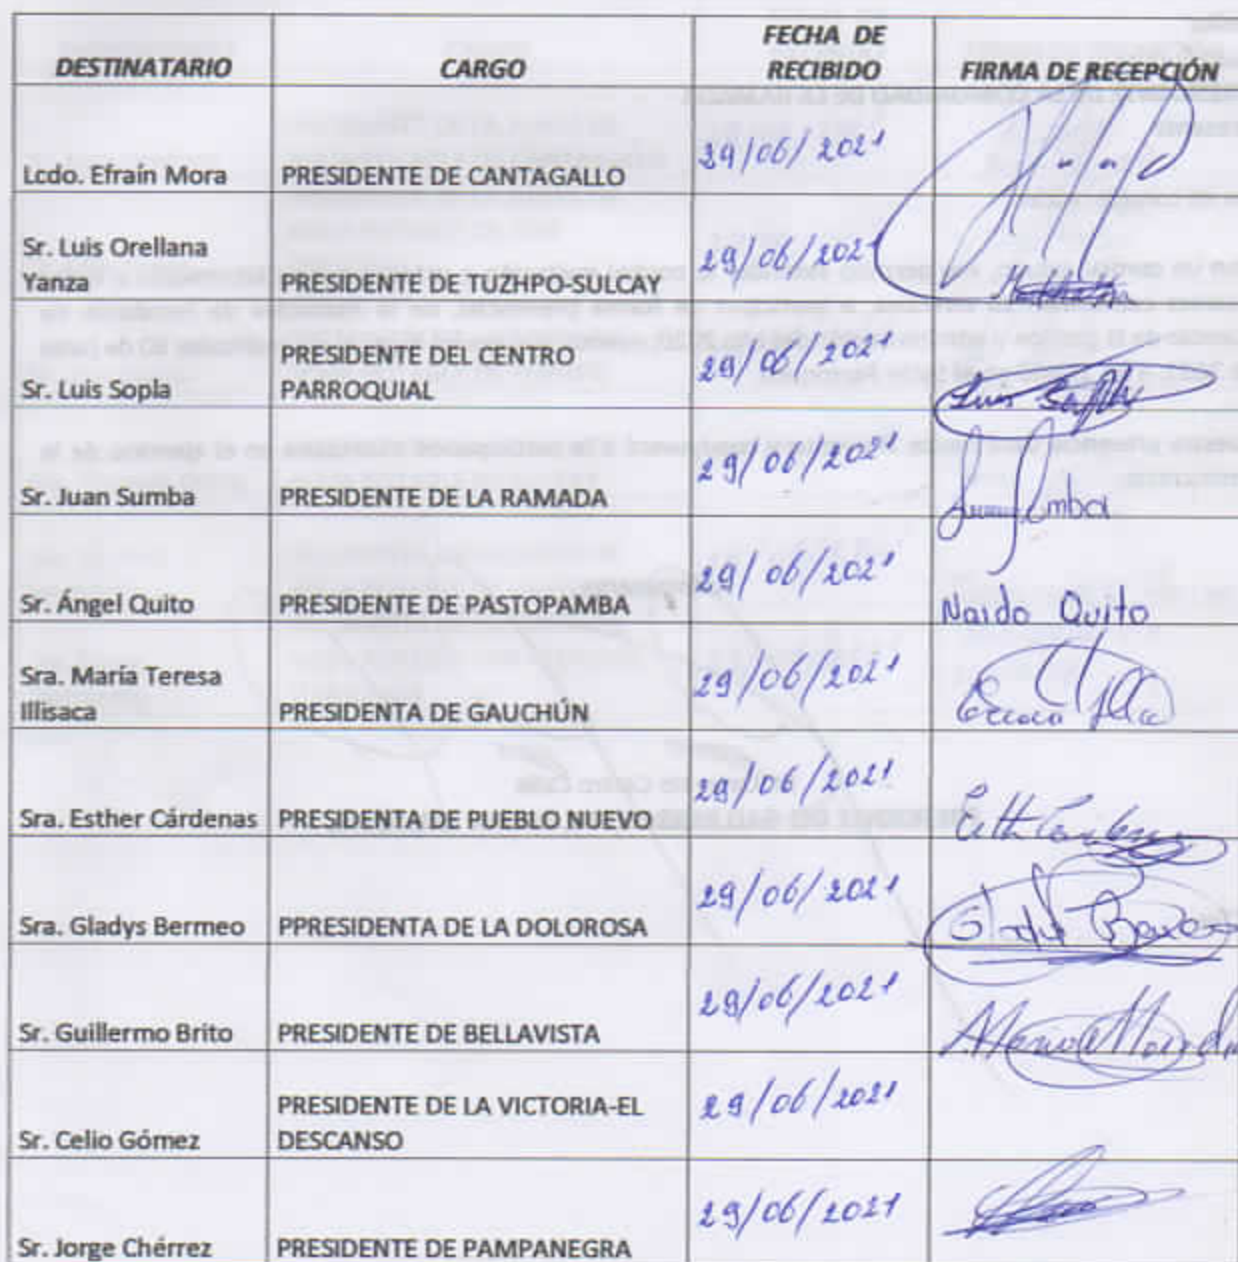 DESTINATARIO CARGO FECHA DE RECIBIDO FIRMA DE RECEPCIÓN
Lcdo. Efraín Mora PRESIDENTE DE CANTAGALLO 29/06/2021
Sr. Luis Orellana
Yanza PRESIDENTE DE TUZHPO-SULCAY 29/06/2021
PRESIDENTE DEL CENTRO
Sr. Luis Sopla PARROQUIAL 29/06/2021 Luis Sopla
Sr. Juan Sumba PRESIDENTE DE LA RAMADA 29/06/2021
Sr. Ángel Quito PRESIDENTE DE PASTOPAMBA 29/06/2021 Naido Quito
Sra. María Teresa
Illisaca PRESIDENTA DE GAUCHÚN 29/06/2021
Sra. Esther Cárdenas PRESIDENTA DE PUEBLO NUEVO 29/06/2021
Sra. Gladys Bermeo PPRESIDENTA DE LA DOLOROSA 29/06/2021
Sr. Guillermo Brito PRESIDENTE DE BELLAVISTA 29/06/2021
PRESIDENTE DE LA VICTORIA-EL
Sr. Celio Gómez DESCANSO 29/06/2021
Sr. Jorge Chérrez PRESIDENTE DE PAMPANEGRA 29/06/2021